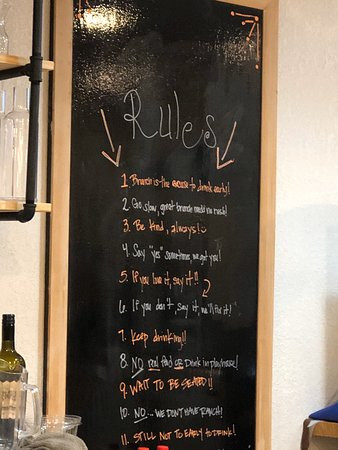 Rules
1. Brunch is the excuse to drink early!
2. Go slow, great brunch need no rush!
3. Be kind, always!
4. Say "yes" sometimes, we got you!
5. If you love it, say it!!
6. If you don't, say it, we'll fix it!
7. Keep drinking!!
8. NO real food or Drink in playhouse!
9. WAIT TO BE SEATED!!
10. NO... WE DON'T HAVE RANCH!
11. STILL NOT TO EARLY TO DRINK!